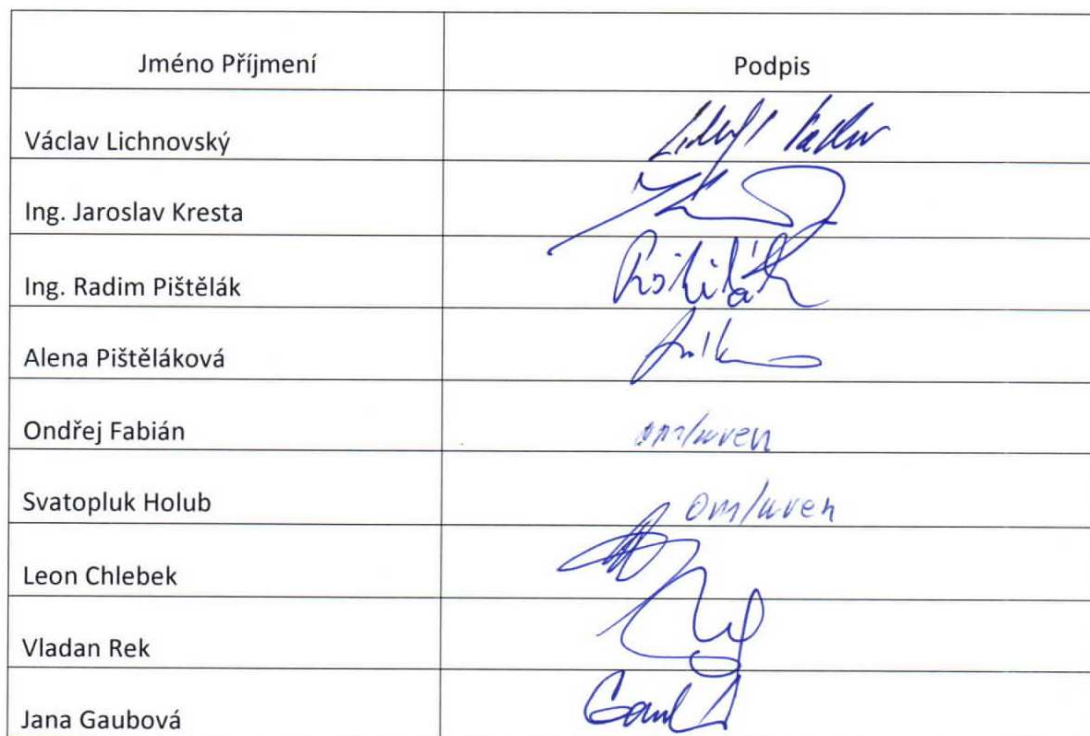 Jméno Příjmení Podpis
Václav Lichnovský
Ing. Jaroslav Kresta
Ing. Radim Pištělák
Alena Pištěláková
Ondřej Fabián omluven
Svatopluk Holub omluven
Leon Chlebek
Vladan Rek
Jana Gaubová